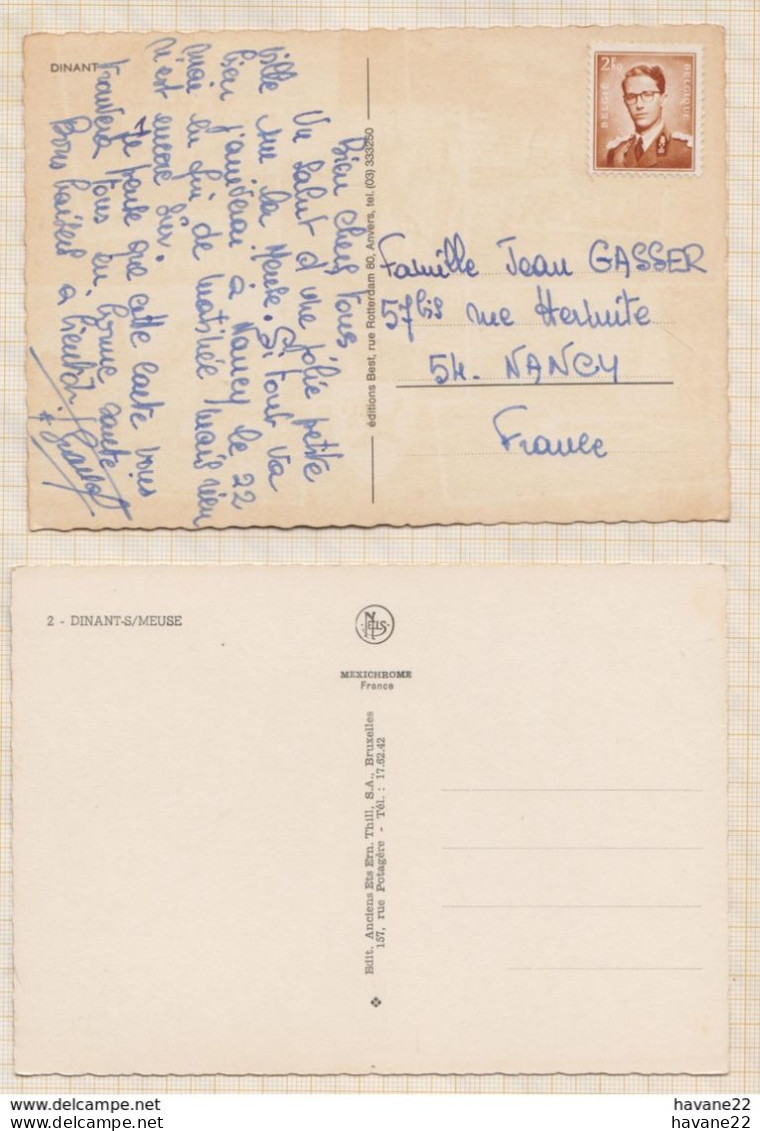 DINANT
Bien chers tous,
Un salut d'une jolie petite
ville sur la Meuse. Si tout va
bien j'arriverai à Nancy le 22
mai en fin de matinée mais rien
n'est encore sûr.
Je pense que cette carte vous
trouvera tous en bonne santé
Bons baisers à bientôt
éditions Best, rue Rotterdam 80, Anvers, tel. (03) 333250
2F50
BELGIE BELGIQUE
Famille Jean GASSER
57bis rue Hermite
54. NANCY
France
2 - DINANT-S/MEUSE
NELS
MEXICHROME
France
Edit. Anciens Ets Ern. Thill, S.A., Bruxelles
157, rue Potagère - Tél. : 17.62.42
Delcampe.net
Delcampe.net
havane22
havane22